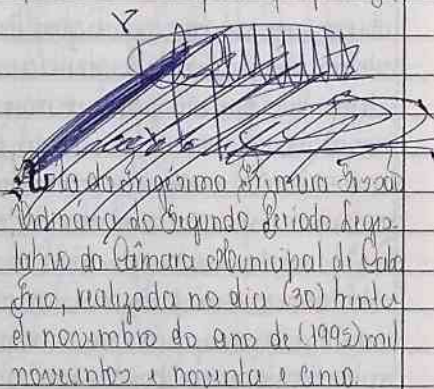 Ata da Trigésima Primeira Sessão
Ordinária do Segundo Período Legis-
lativo da Câmara Municipal de Cabo
Frio, realizada no dia (30) trinta
de novembro do ano de (1995) mil
novecentos e noventa e cinco.